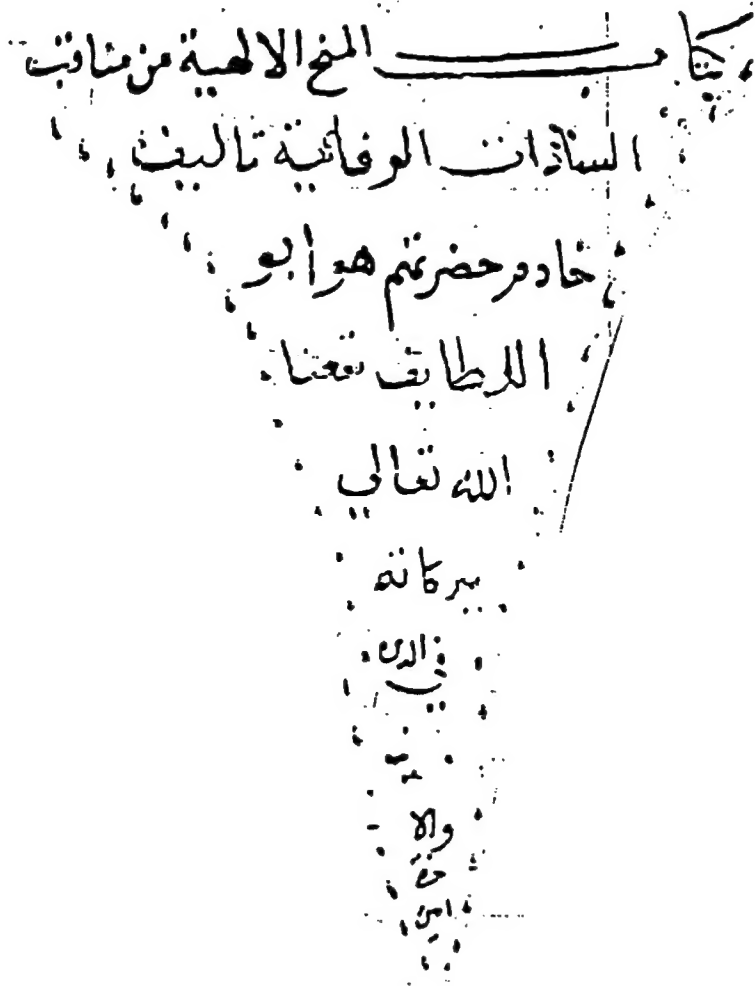 كتاب المنح الالهية من مناقب
السادات الوفائية تاليف
خادم حضرتهم هو ابو
اللطايف نفعنا
الله تعالي
ببركاته
في الدين
والا
خره
امين